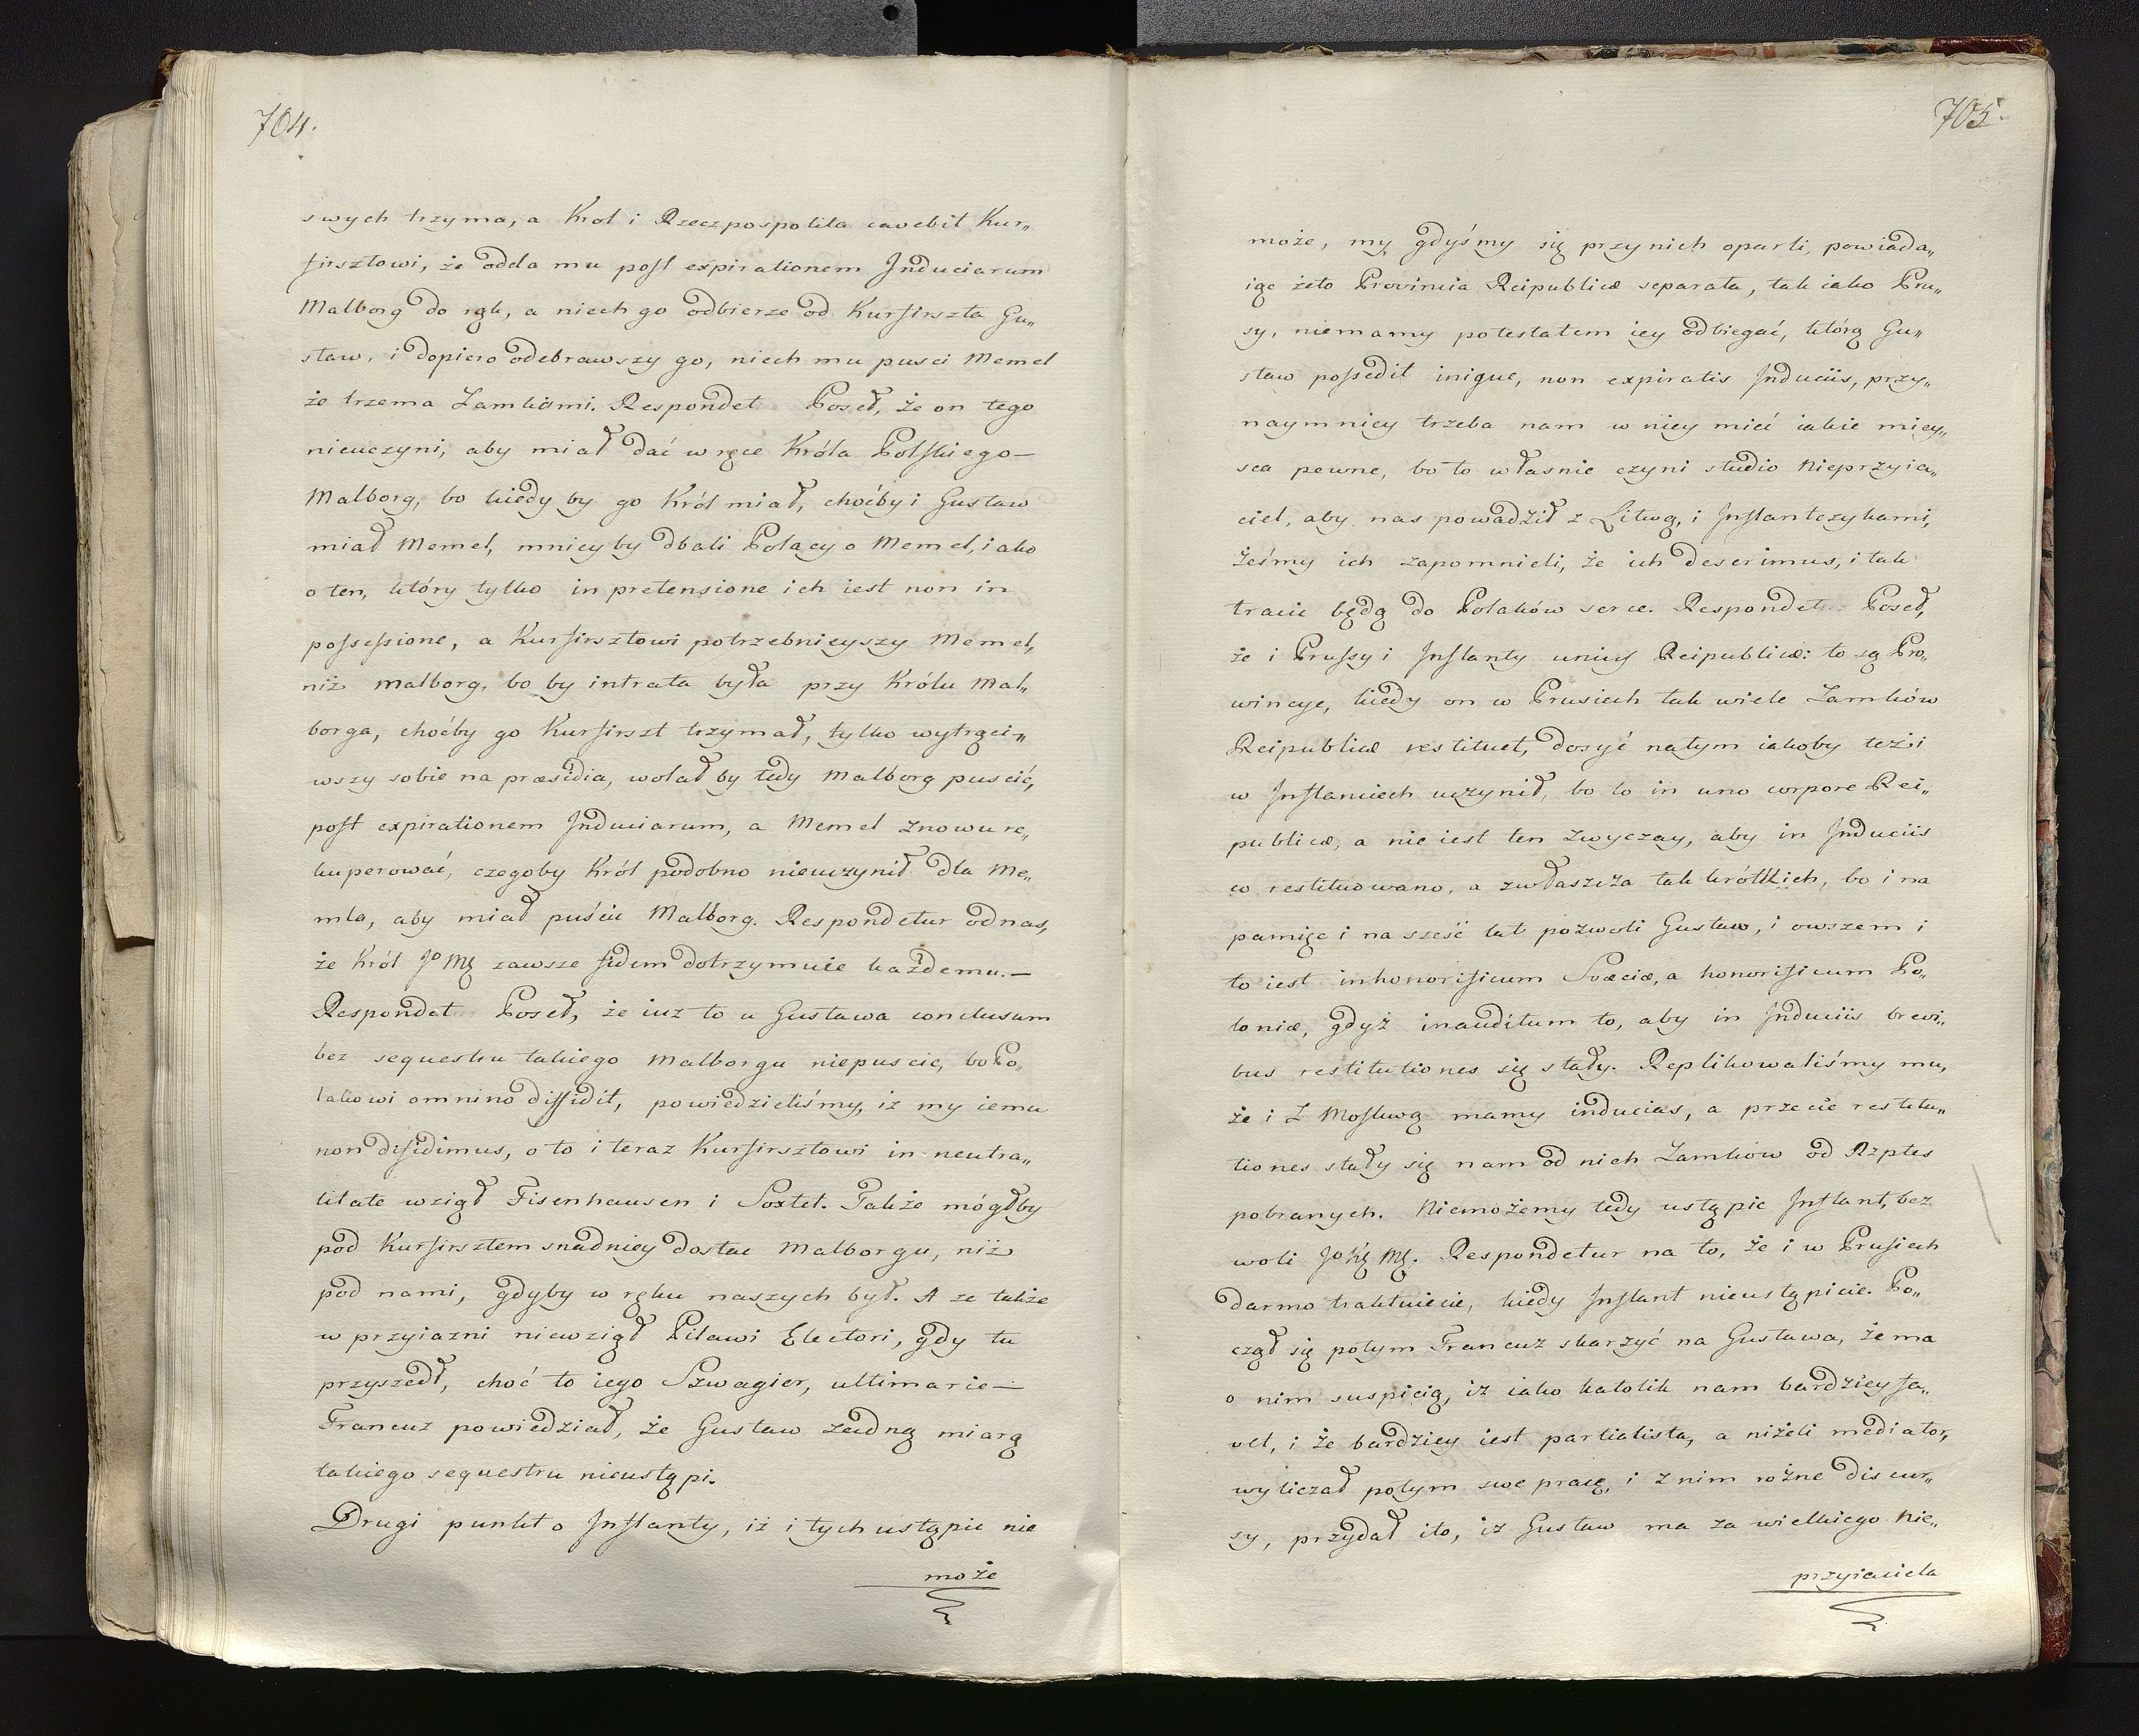 704.
swych trzyma, a Krol i Rzeczpospolita cavebit Kur„
firsztowi, że odda mu post expirationem Induciarum
Malborg do rąk, a niech go odbierze od Kurfirszta Gu„
staw, i dopiero odebrawszy go, niech mu pusci Memel
że trzema Zamkami. Respondet Poseł, że on tego
nieuczyni, aby miał dać w ręce Króla Polskiego —
Malborg, bo kiedy by go Król miał, choćby i Gustaw
miał Memel, mniey by dbali Polacy o Memel, iako
o ten, który tylko in pretensione ich iest non in
possessione, a Kurfirsztowi potrzebnieyszy Memel,
niż malborg, bo by intrata była przy Królu Mal„
borga, choćby go Kurfirszt trzymał, tylko wytrąci„
wszy sobie na præsidia, wolał by tedy Malborg puscić,
post expirationem Induciarum, a Memel znowu re„
kuperować, czegoby Król podobno nieuczynił dla Me„
mla, aby miał puścić Malborg. Respondetur od nas,
że Król Jo Mę zawsze fidem dotrzymuie każdemu. —
Respondet Poseł, że iuz to u Gustawa conclusum
bez sequestru takiego Malborgu niepuscic, bo Po„
lakowi omnino diffidit, powiedzieliśmy, iz my iemu
non difidimus, o to i teraz Kurfirsztowi in neutra„
litate wziął Fisenhausen i Soxtet. Także mógłby
pod Kurfirsztem snadniey dostac Malborgu, niż
pod nami, gdyby w ręku naszych był. A ze także
w przyiazni niewziął Pilawi Electori, gdy tu
przyszedł, choć to iego Szwagier, ultimarie —
Francuz powiedział, że Gustaw żadną miarą
takiego sequestru nieustąpi.
Drugi punkt o Inflanty, iż i tych ustąpic nie
może
705.
może, my gdyśmy się przy nich oparli, powiada„
iąc żeto Provincia Reipublicæ separata, tak iako Pru„
sy, niemamy potestatem iey odbiegać, którą Gu„
staw possedit inique, non expiratis Induciis, przy„
naymniey trzeba nam w niey mieć iakie miey„
sca pewne, bo to własnie czyni studio Nieprzyia„
ciel, aby nas powadził z Litwą, i Inflantczykami,
żeśmy ich zapomnieli, że ich deserimus, i tak
tracic będą do Polaków serce. Respondet Poseł,
że i Prussy i Inflanty unius Reipublicæ: to są Pro„
wincye, kiedy on w Prusiech tak wiele Zamków
Reipublicæ restituet, dosyć natym iakoby też i
w Inflanciech uczynił, bo to in uno corpore Rei„
publicæ, a nie iest ten zwyczay, aby in Induciis
co restituowano, a zwłaszcza tak krótkich, bo i na
pamięc i na sześć lat pozwoli Gustaw, i owszem i
to iest inhonorificum Sveciæ, a honorificum Po„
loniæ, gdyż inauditum to, aby in Induciis brevi„
bus restitutiones się stały. Replikowaliśmy mu,
że i z Moskwą mamy inducias, a przecie restitu„
tiones stały się nam od nich Zamków od Rzptes
pobranych. Niemożemy tedy ustąpic Inflant, bez
woli Jo Kę Mę. Respondetur na to, że i w Prusiech
darmo traktuiecie, kiedy Inflant nieustąpicie. Po„
czął się potym Francuz skarżyć na Gustawa, że ma
o nim suspicią, iż iako katolik nam bardziey fa„
vet, i że bardziey iest partialista, a niżeli mediator,
wyliczał potym swe pracę, i z nim rożne discur„
sy, przydał ito, iz Gustaw ma za wielkiego Nie„
przyiaciela